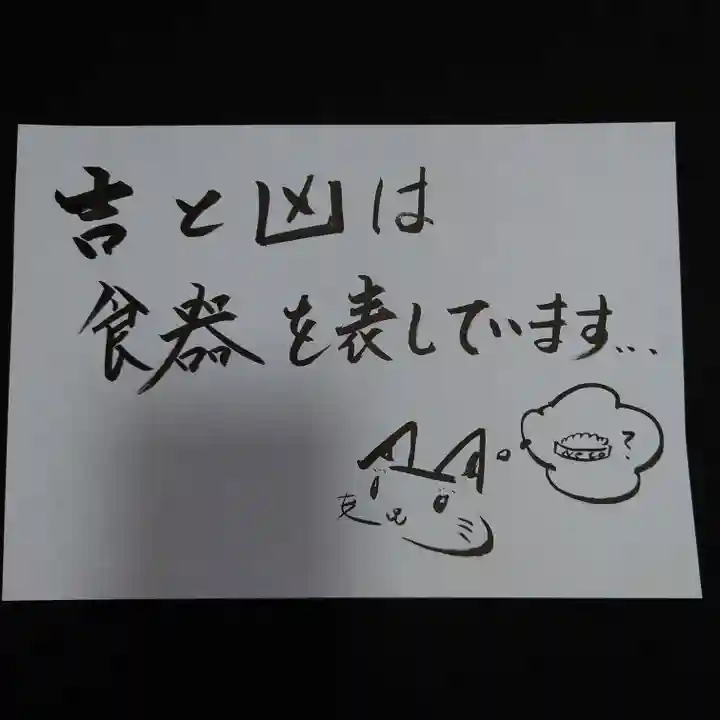 吉と凶は
食器を表しています...
NECO
?